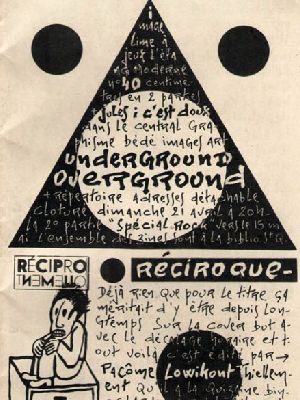 i
image
lime à
jeux l'éta
ng moderne
40 centime
tres en 2 parties
+ jules i c'est doux
dans le central gra-
phisme bédé images art
underground
overground
+ répertoire adresses détachable
cloture dimanche 21 avril à 20h.
la 2e partie "spécial rock" vers le 15 m
ai l'ensemble des zines sont à la biblio St G.
RÉCIPRO
QUEMENT
RÉCIROQUE-
Déjà rien que pour le titre ça
méritait d'y être depuis lon-
gtemps sur la cover but av-
ec le décalage horaire et t-
out voilà c'est édité par →
Pacôme Lowikont thiellem-
ent qu'il a la quinzaine bin